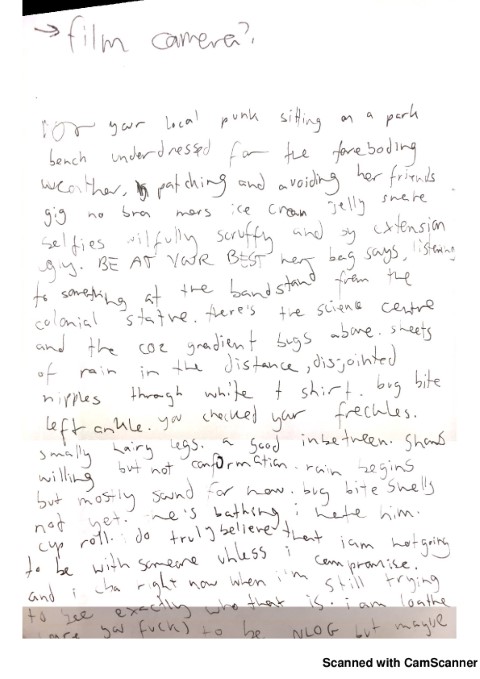 → film camera?
your local punk sitting on a park
bench underdressed for the foreboding
weather, patching and avoiding her friends
gig no bra mars ice cream jelly snake
selfies wilfully scruffy and by extension
guy. BE AT YOUR BEST her bag says, listening
to something at the bandstand from the
colonial statue. there's the science centre
and the coz gradient bugs above. sheets
of rain in the distance, disjointed
nipples through white t shirt. bug bite
left ankle. you checked your freckles.
smally hairy legs. a good inbetween. shows
willing but not conformation. rain begins
but mostly sound for now. bug bite swells
not yet. he's bathing i hate him.
cyp roll. i do truly believe that i am not going
to be with someone unless i compromise.
and i cba right now when i'm still trying
to see exactly who that is. i am loathe
(are you fuck) to be NLOG but maybe
Scanned with CamScanner